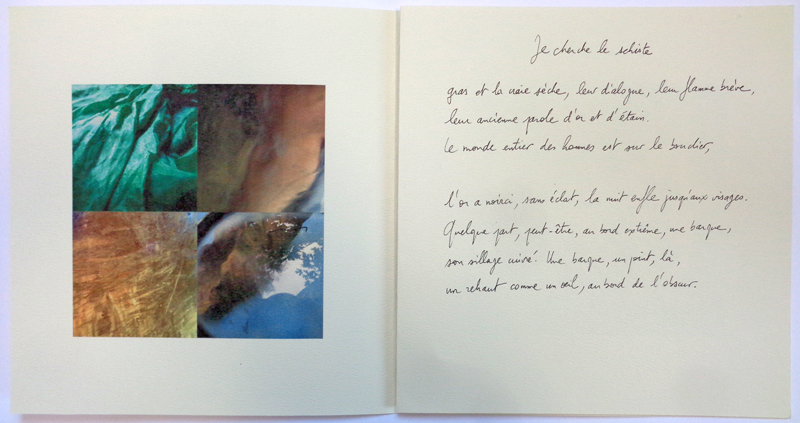 Je cherche le schiste
gras et la craie sèche, leur dialogue, leur flamme brève,
leur ancienne parole d'or et d'étain.
Le monde entier des hommes est sur le bouclier,
l'or a noirci, sans éclat, la nuit enfle jusqu'aux visages.
Quelque part, peut-être, au bord extrême, une barque,
son sillage cuivré. Une barque, un point, là,
un rehaut comme un œil, au bord de l'obscur.